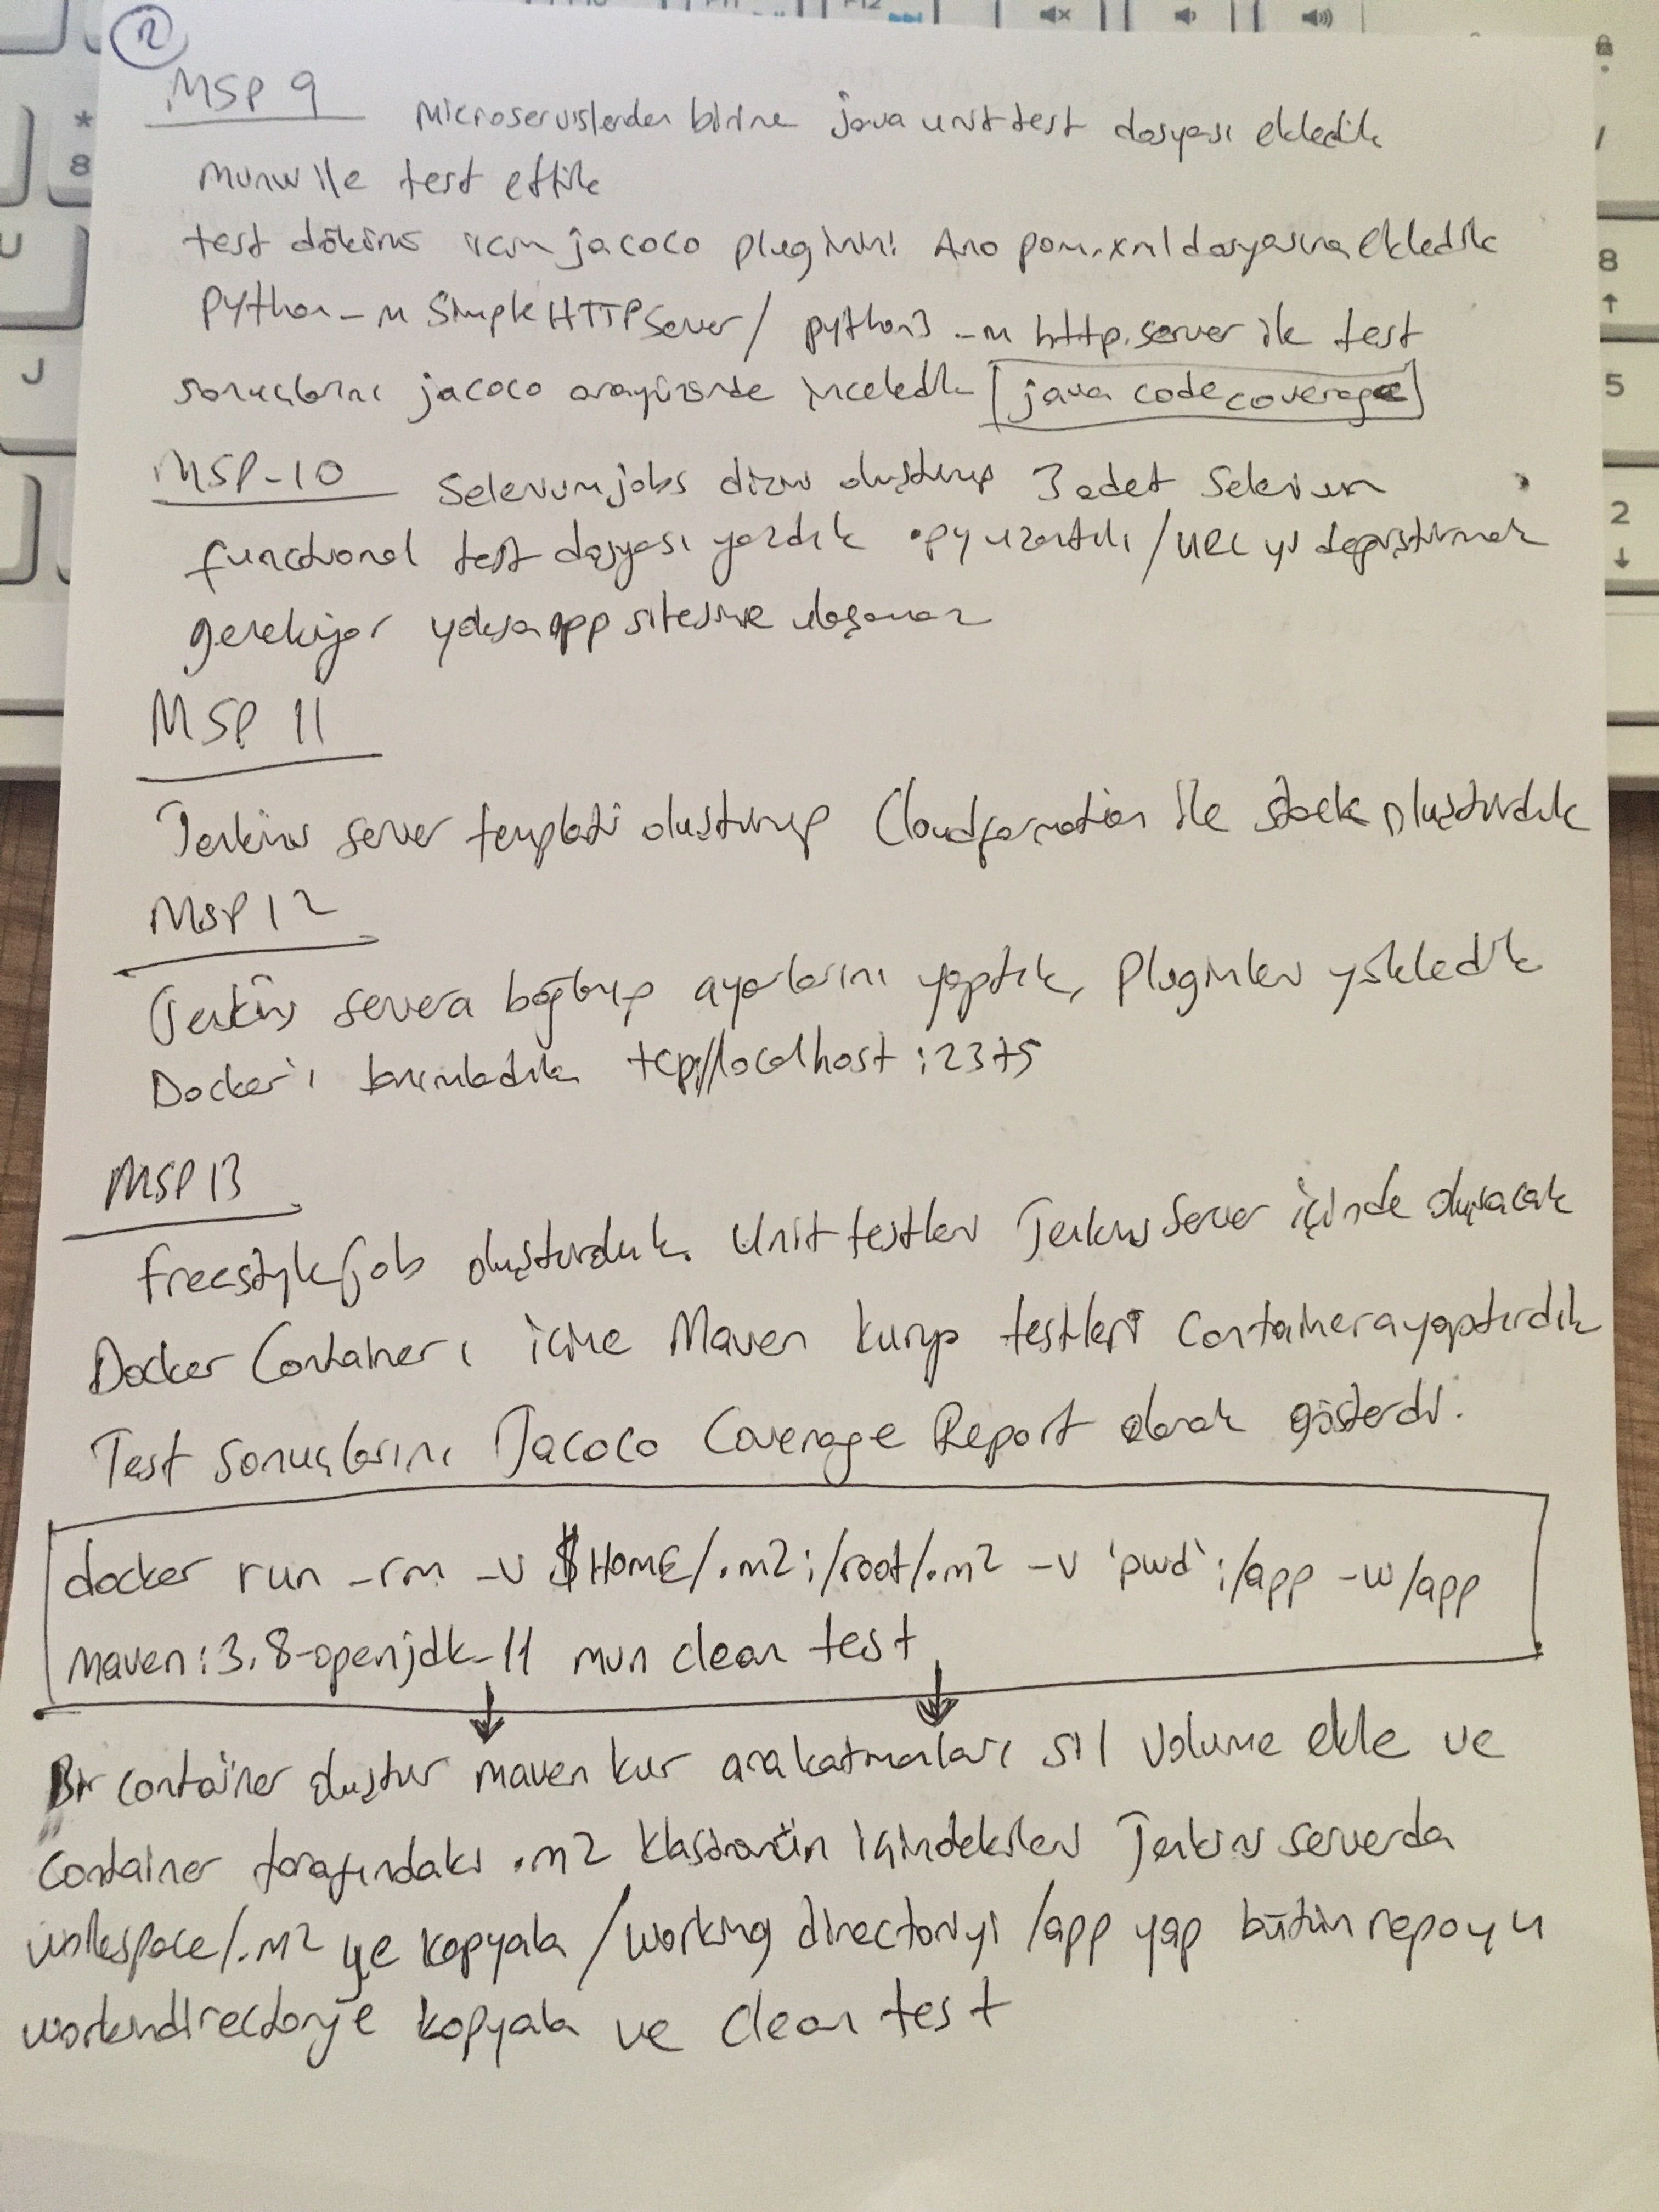 2
MSP 9 Microservislerden birine java unit test dosyası ekledik
mvnw ile test ettik
test dökümü için jacoco pluginini Ana pom.xml dosyasına ekledik
Python -m SimpleHTTPServer / python3 -m http.server ile test
sonuçlarını jacoco arayüzünde inceledik [java code coverage]
MSP-10 Selenium jobs dizini oluşturup 3 adet Selenium
functional test dosyası yazdık .py uzantılı / URL yi değiştirmek
gerekiyor yoksa app sitesine ulaşamaz
MSP 11
Jenkins server templati oluşturup Cloudformation ile stack oluşturduk
MSP 12
Jenkins servera bağlanıp ayarlarını yaptık, Pluginler yükledik
Docker'ı tanımladık tcp://localhost:2375
MSP 13
freestyle job oluşturduk. Unit testler Jenkins Server içinde oluşacak
Docker Container ı içine Maven kurup testleri Containera yaptırdık
Test sonuçlarını Jacoco Coverage Report olarak gösterdi.
docker run -rm -v $HOME/.m2:/root/.m2 -v `pwd`:/app -w /app
maven:3.8-openjdk-11 mvn clean test
Bir container oluştur maven kur arakatmanları sil volume ekle ve
Container tarafındaki .m2 klasörünün içindekileri Jenkins serverda
workspace/.m2 ye kopyala / working directoriyi /app yap bütün repoyu
workindirectorye kopyala ve clean test